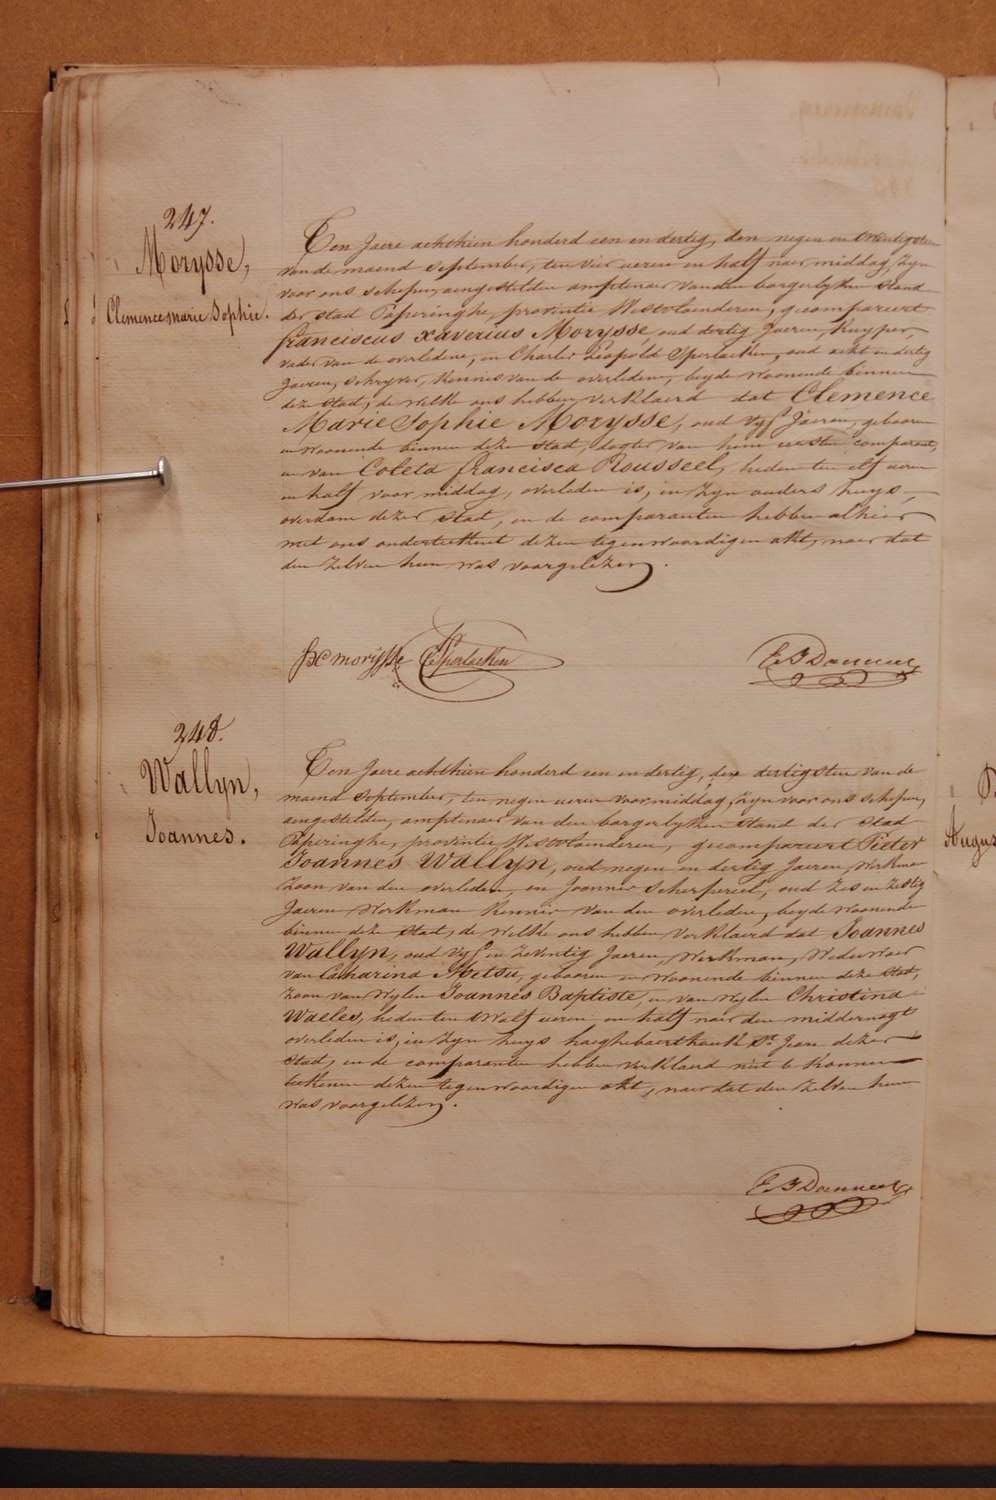 247.
Morysse,
Clemence marie Sophie.
Ten Jaere achthien honderd een en dertig, den negen en twentigsten
van de maend September, ten vier ueren en half naer middag, Zyn
voor ons schepen, aengestelden amptenaer van den borgerlyken stand
der stad Poperinghe, provintie Westvlaenderen, gecompareert
franciscus xaverius Morysse, oud dertig Jaeren, kuyper,
vader van de overledene, en Charles Leopold Sperlaeken, oud acht en dertig
Jaeren, schryver, kennis van de overledene, beyde woonende binnen
deze stad, de welke ons hebben verklaerd dat Clemence
Marie Sophie Morysse, oud vyf Jaeren, gebooren
en woonende binnen deze stad, dogter van hem eersten comparant,
en van Coleta francisca Rousseel, heden ten elf ueren
en half voor middag, overleden is, in Zyn ouders huys,
overdam dezer stad, en de comparanten hebben alhier
met ons onderteekent dezen tegenwoordigen akt, naer dat
den Zelven hun was voorgelezen.
fx morysse CLSperlaeken
248.
Wallyn,
Joannes.
Ten Jaere achthien honderd een en dertig, den dertigsten van de
maend September, ten negen ueren voormiddag, Zyn voor ons schepen,
aengestelden, amptenaer van den borgerlyken stand der stad
Poperinghe, provintie Westvlaenderen, gecompareert Pieter
Joannes Wallyn, oud negen en dertig Jaeren, Werkman
Zoon van den overleden, en Joannes Scherpereel, oud Zes en Zestig
Jaeren Werkman kennis van den overleden, beyde woonende
binnen deze stad, de Welke ons hebben verklaerd dat Joannes
Wallyn, oud vyf en Zeventig Jaeren, Werkman, Weduwaer
van Catharina Metsu, gebooren en woonende binnen deze stad,
Zoon van wylen Joannes Baptiste, en van wylen Christina
Waeles, heden ten twalf ueren en half naer den middernagt
overleden is, in Zyn huys haeghebaerthouk St. Jan dezer
stad, en de comparanten hebben verklaerd niet te konnen
teekenen dezen tegenwoordigen akt, naer dat den Zelven hun
was voorgelezen.
Augus